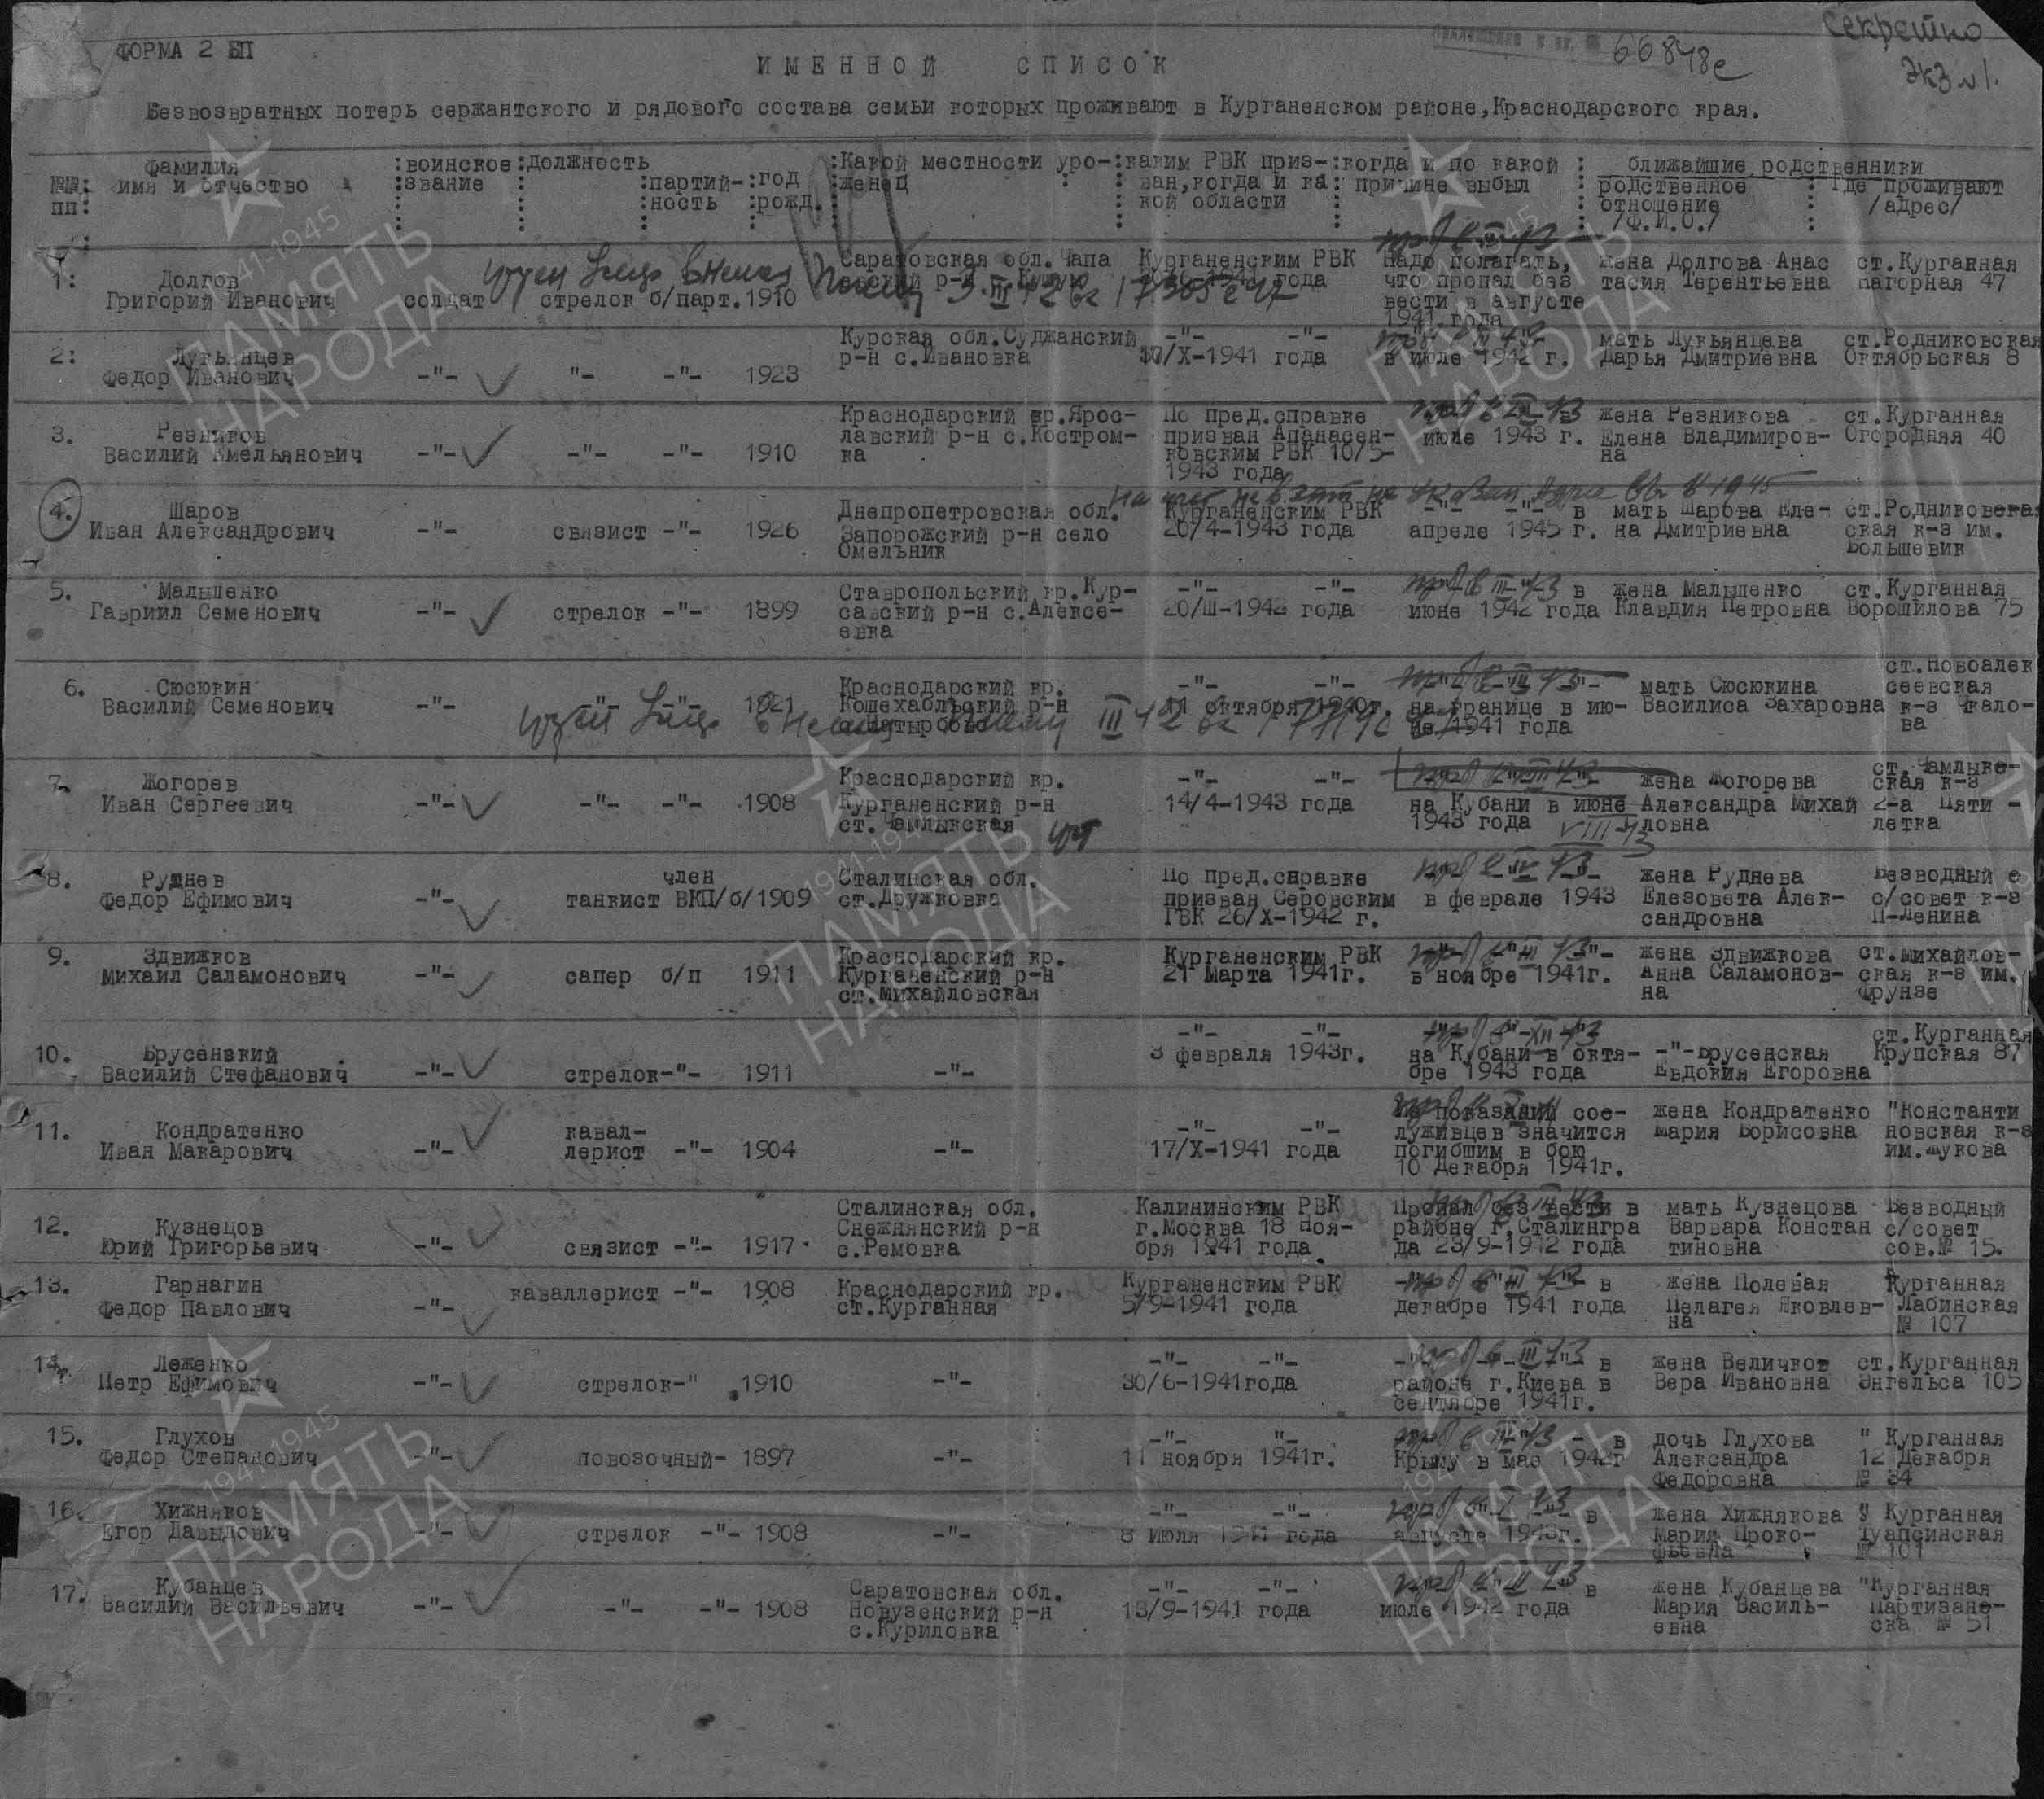 Секретно
66848с
Экз №1.
ФОРМА 2 БП
ИМЕННОЙ СПИСОК
Безвозвратных потерь сержантского и рядового состава семьи которых проживают в Курганенском районе,Краснодарского края.
№№ пп : фамилия имя и отчество : воинское звание : должность : партийность : год рожд. : Какой местности уроженец : каким РВК призван,когда и какой области : когда и по какой причине выбыл : ближайшие родственники родственное отношение /Ф.И.О./ : Где проживают /адрес/
1: Долгов Григорий Иванович солдат стрелок б/парт. 1910 Саратовская обл. Чапа Курганенским РВК 1941 года Надо полагать, что пропал без вести в августе 1941 года жена Долгова Анас тасия Терентьевна ст.Курганная нагорная 47
2: Лукьянцев Федор Иванович -"- "- -"- 1923 Курская обл.Суджанский р-н с.Ивановка -"- -"- /X-1941 года в июле 1942 г. мать Лукьянцева Дарья Дмитриевна ст.Родниковская Октябрьская 8
3. Резников Василий Емельянович -"- -"- -"- 1910 Краснодарский кр.Ярос- лавский р-н с.Костром- ка По пред.справке призван Апанасен- ковским РВК 10/5- 1943 года в июле 1943 г. жена Резникова Елена Владимиров- на ст.Курганная Огородняя 40
4. Шаров Иван Александрович -"- связист -"- 1926 Днепропетровская обл. Запорожский р-н село Омельник Курганенским РВК 20/4-1943 года -"- -"- в апреле 1945 г. мать Шарова Еле- на Дмитриевна ст.Родниковская ская к-з им. Большевик
5. Малышенко Гавриил Семенович -"- стрелок -"- 1899 Ставропольский кр.Кур- савский р-н с.Алексе- евка -"- -"- 20/Ш-1942 года в июне 1942 года жена Малышенко Клавдия Петровна ст.Курганная Ворошилова 75
6. Сюсюкин Василий Семенович -"- -"- -"- 1921 Краснодарский кр. Кошехабльский р-н -"- -"- 11 октября 1940г. на границе в ию- не 1941 года мать Сюсюкина Василиса Захаровна ст.Новоалек сеевская к-з Чкало- ва
7. Жогорев Иван Сергеевич -"- -"- -"- 1908 Краснодарский кр. Курганенский р-н ст.Чамлыкская -"- -"- 14/4-1943 года на Кубани в июне 1943 года VIII-43 жена Жогорева Александра Михай ловна ст.Чамлыкс- ская к-з 2-а Пяти - летка
8. Руднев Федор Ефимович -"- танкист член ВКП/б/ 1909 Сталинская обл. ст.Дружковка По пред.справке призван Серовским ГВК 26/X-1942 г. в феврале 1943 жена Руднева Елезовета Алек- сандровна Безводный с с/совет к-з П-Ленина
9. Здвижков Михаил Саламонович -"- сапер б/п 1911 Краснодарский кр. Курганенский р-н ст.Михайловская Курганенским РВК 21 Марта 1941г. в ноябре 1941г. жена Здвижкова Анна Саламонов- на ст.Михайлов- ская к-з им. Фрунзе
10. Брусенский Василий Стефанович -"- стрелок-"- 1911 -"- -"- -"- 3 февраля 1943г. на Кубани в октя- бре 1943 года -"-Брусенская Евдокия Егоровна ст.Курганная Крупская 87
11. Кондратенко Иван Макарович -"- кавал- лерист -"- 1904 -"- -"- -"- 17/X-1941 года По показаний сос- луживцев значится погибшим в бою 10 Декабря 1941г. жена Кондратенко Мария Борисовна "Константи новская к-з им.Жукова
12. Кузнецов Юрий Григорьевич -"- связист -"- 1917 Сталинская обл. Снежнянский р-н с.Ремовка Калининским РВК г.Москва 18 Ноя- бря 1941 года Пропал без вести в районе г.Сталингра да 23/9-1942 года мать Кузнецова Варвара Констан тиновна Безводный с/совет сов.№ 15.
13. Гарнагин Федор Павлович -"- каваллерист -"- 1908 Краснодарский кр. ст.Курганная Курганенским РВК 5/9-1941 года в декабре 1941 года жена Полевая Пелагея Яковлев- на Курганная Лабинская № 107
14. Леженко Петр Ефимович -"- стрелок-" 1910 -"- -"- -"- 30/6-1941года в районе г.Киева в сентябре 1941г. жена Величков Вера Ивановна ст.Курганная Энгельса 105
15. Глухов Федор Степанович -"- повозочный- 1897 -"- -"- "- 11 ноября 1941г. в Крыму в мае 1942г дочь Глухова Александра Федоровна " Курганная 12 Декабря № 34
16. Хижняков Егор Давыдович -"- стрелок -"- 1908 -"- -"- -"- 8 Июля 1941 года в августе 1943г. жена Хижнякова Мария Проко- фьевна " Курганная Туапсинская № 101
17. Кубанцев Василий Васильевич -"- -"- -"- 1908 Саратовская обл. Новузенский р-н с.Куриловка -"- -"- 13/9-1941 года в июле 1942 года жена Кубанцева Мария Василь- евна "Курганная Партизанс- ска № 51
ПАМЯТЬ НАРОДА
1941-1945